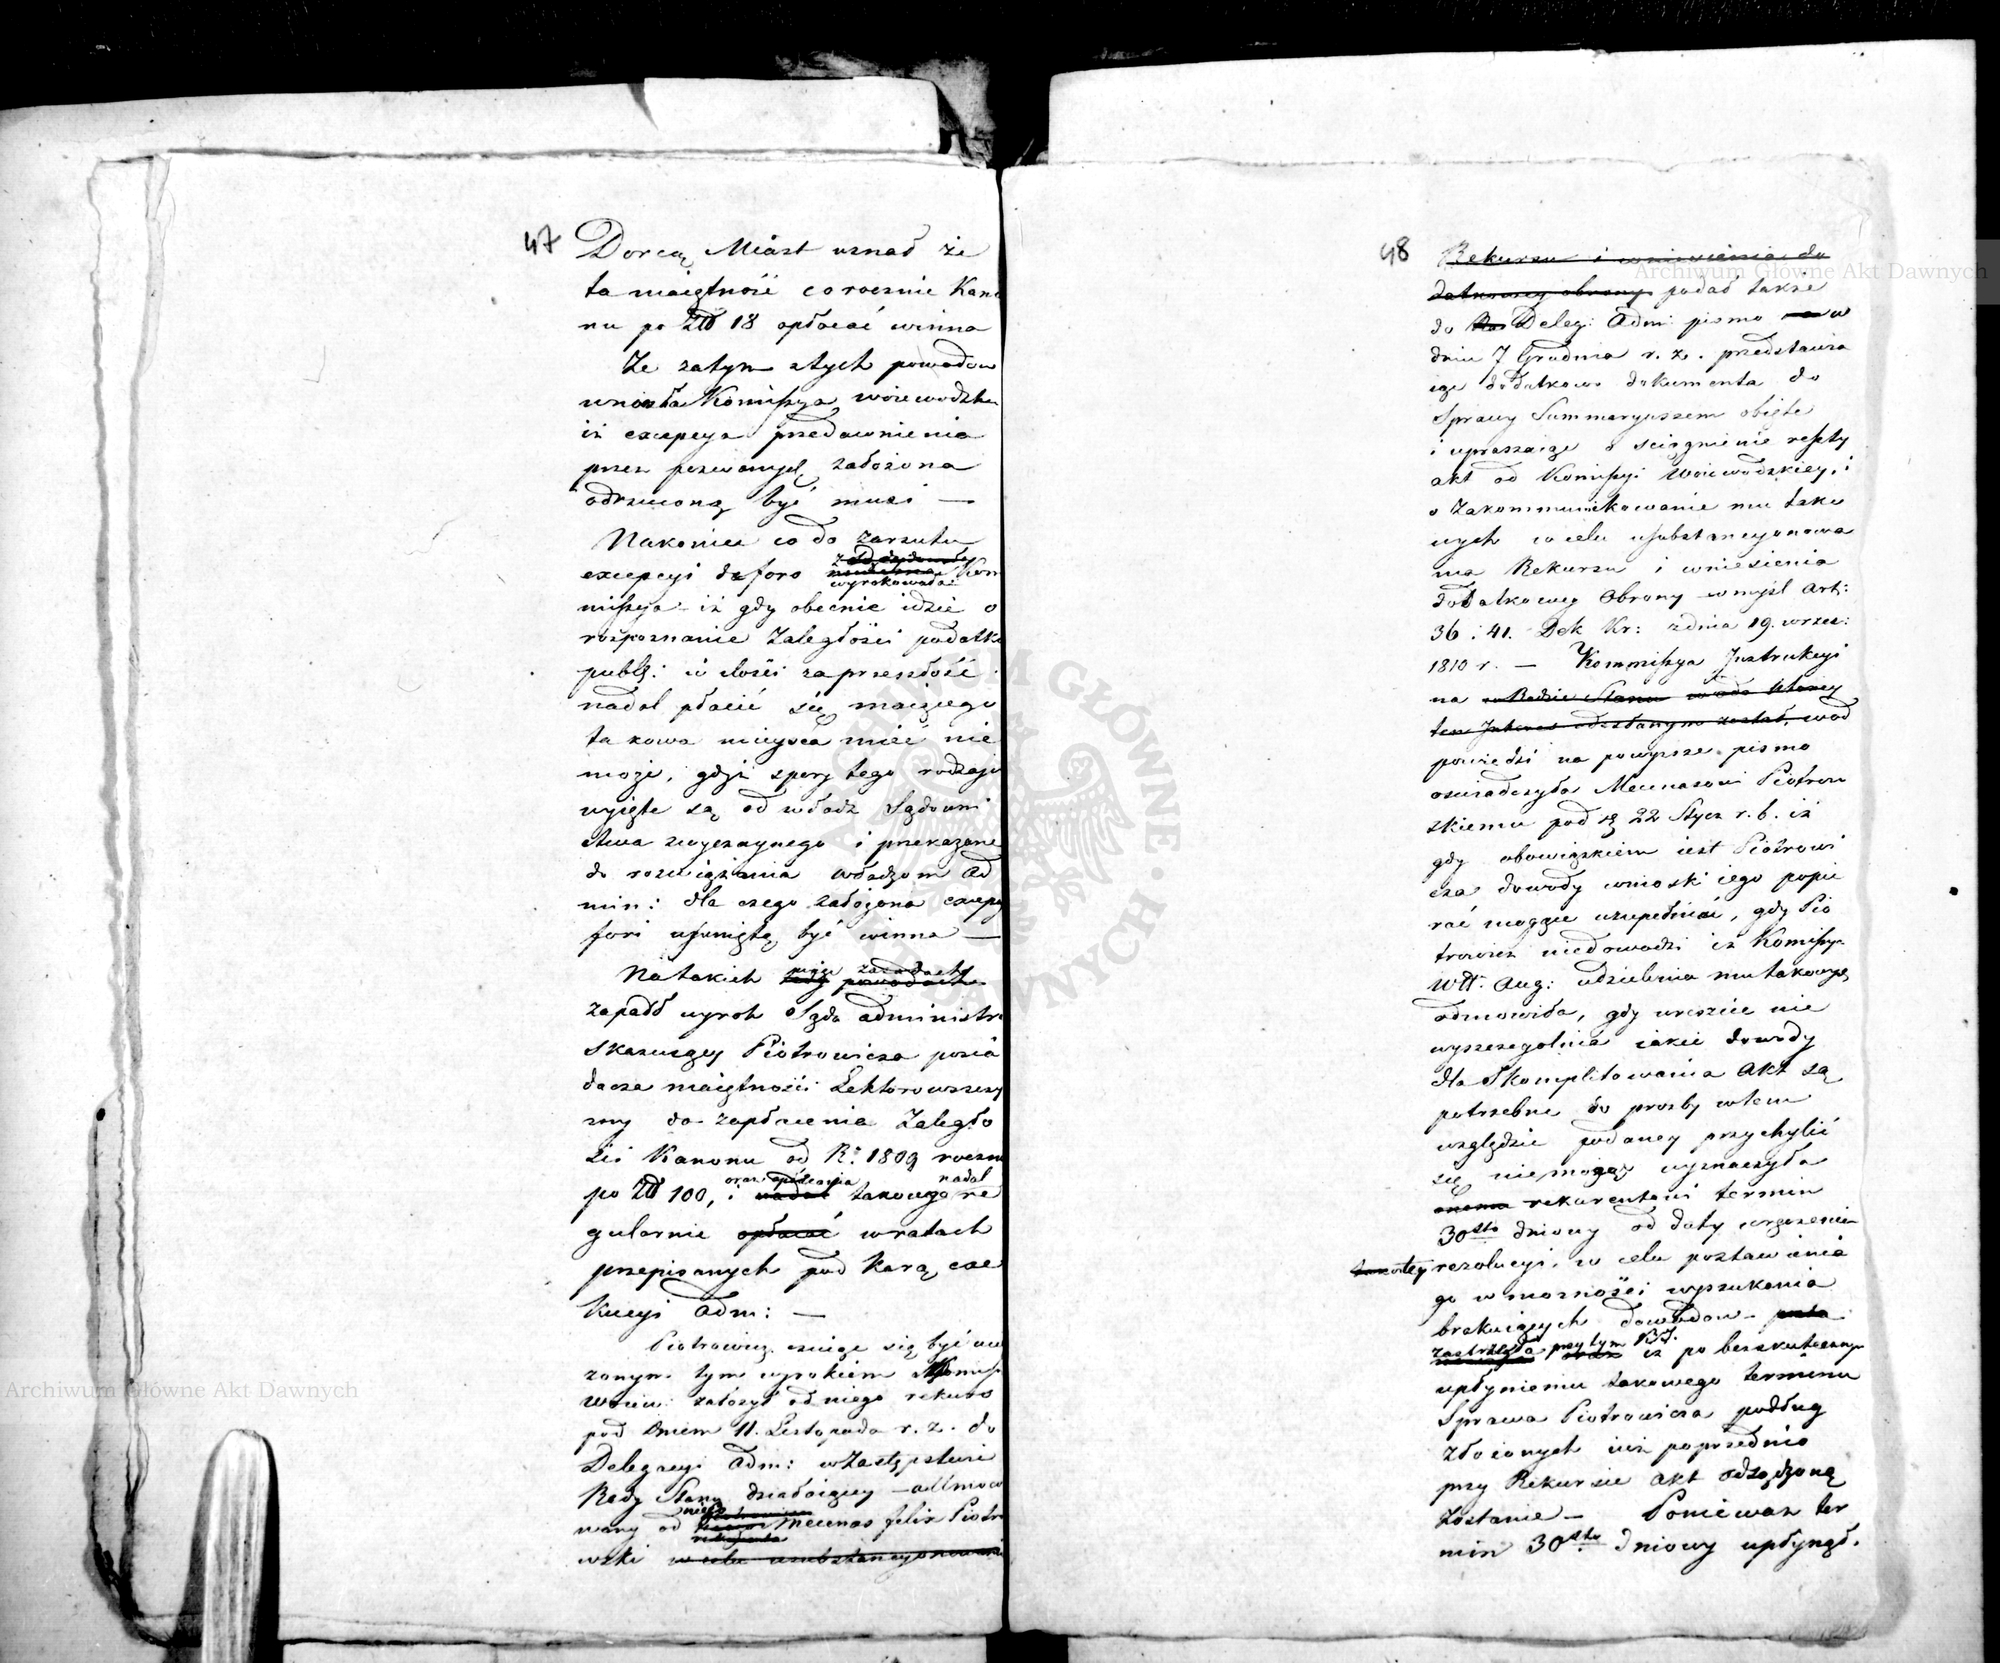 47
Dorcą Miast uznał że
ta maiętność corocznie Kano
nu po Złł 18 opłacać winna
Ze zatym z tych powodów
wniosła Kommissya woiewodzka
iż excepcya przedawnienia
przez pozwanych założona
odrzuconą być musi —
Nakoniec co do zarzutu
excepcyi de foro wyrokowała Kom
missya iż gdy obecnie idzie o
rozpoznanie Zaległości podatku
publ: w ilości zaprzeszłość
nadal płacić się maiącego
takowa mieysca mieć nie
może, gdyż spory tego rodzaju
wyięte są od władz Sądowni
ctwa zwyczaynego i przekazane
do rozwiązania władzom Ad
min: dla czego założona excepcya
fori usuniętą być winna —
Na takich więc zasadach
zapadł wyrok Sądu administr
skazuiący Piotrowicza posia
dacza maiętności Lektorowszczy
zny do zapłacenia Zaległo
ści Kanonu od R: 1809 roczn
po Złł 100, i oraz opłacania takowego nadal re
gularnie opłacać w ratach
przepisanych pod karą exe
kucyi Adm: —
Piotrowicz czuiąc się być
zonym tym wyrokiem Kommiss
Woiew: założył od niego rekurs
pod dniem 11. Listopada r. z. do
Delegacyi Adm: w Zastępstwie
Rady Stanu działaiącey —
wany od niego Mecenas Felix Piotro
wski w celu usubstancyonowania
48
Rekursu i wniesienia do
datkowey obrony podał także
do Deleg: Adm: pismo w
dniu 7 Grudnia r. z. przedstawia
iąc dodatkowo dokumenta do
Sprawy Summaryuszem obięte
i upraszaiąc o ściągnienie reszty
akt od Kommissyi Woiewódzkiey, i
o Zakommunikowanie mu tako
wych w celu usubstancyonowa
nia Rekursu i wniesienia
dodatkowey Obrony w myśl Art:
36 i 41. Dek Kr: z dnia 19. wrześ:
1810 r. — Kommissya Instrukcyi
na w Radzie Stanu w do którey
ten Interes odesłanym został, w od
powiedzi na powyższe pismo
oswiadczyła Mecenasowi Piotrow
skiemu pod d. 22 Stycz r. b. iż
gdy obowiązkiem iest Piotrowi
cza dowody wnioski iego popie
rać mogące uzupełniać, gdy Pio
trowicz niedowodzi iż Kommissya
Wtt. Aug: udzielenia mu takowych
odmówiła, gdy wreszcie nie
wyszczególnia iakie dowody
dla Skompletowania Akt są
potrzebne do prozby w tem
względzie podaney przychylić
się niemogąc wyznaczyła
rekurentowi termin
30sto dniowy od daty wręczenia
rezolucyi, w celu postawienia
go w możności wyszukania
brakuiących dowodów
zastrzegła przy tym K.J. iż po bezskutecznym
upłynieniu takowego terminu
Sprawa Piotrowicza podług
złożonych iuż poprzednio
przy Rekursie Akt odsądzoną
zostanie — Ponieważ ter
min 30sto dniowy upłynął.
Archiwum Główne Akt Dawnych
Archiwum Główne Akt Dawnych
ARCHIWUM GŁÓWNE AKT DAWNYCH